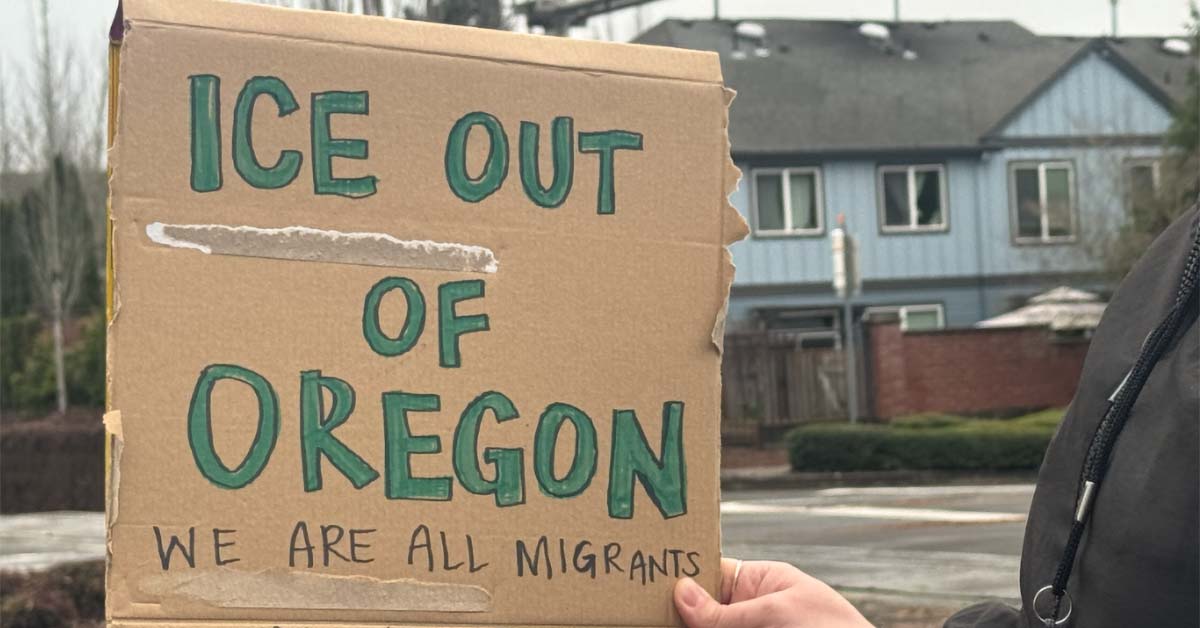 ICE OUT
OF
OREGON
WE ARE ALL MIGRANTS